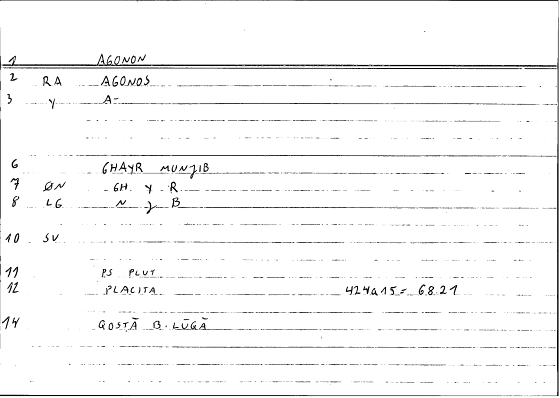 1 AGONON
2 RA AGONOS
3 Y A-
6 GHAYR MUNJIB
7 ØN GH Y R
8 LG N J B
10 SV
11 PS PLUT
12 PLACITA 424a15 = 68.21
14 QOSTĀ B. LŪQĀ